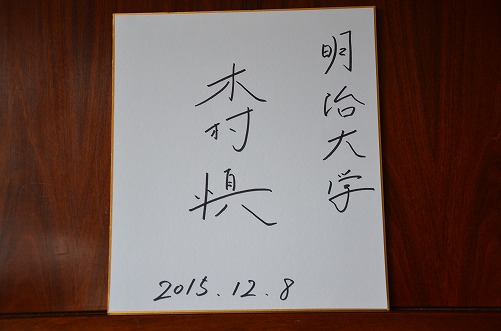 明治大学
木村
慎
2015.12.8